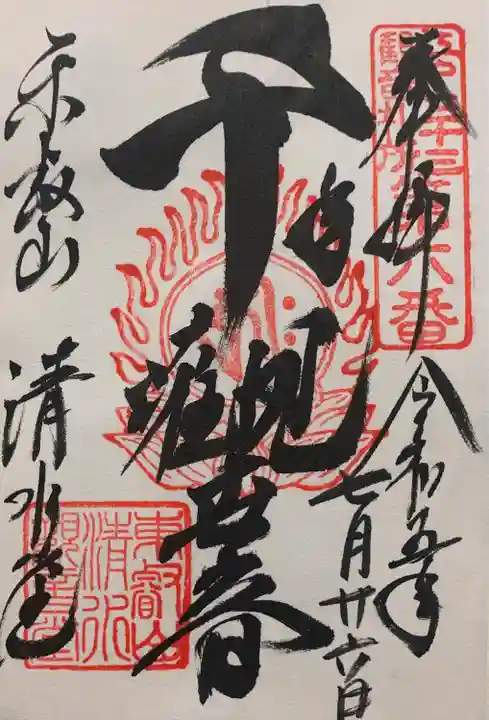 奉拝
令和五年
七月廿六日
千手
觀世音
東叡山
清水堂
東叡山
清水
觀音堂